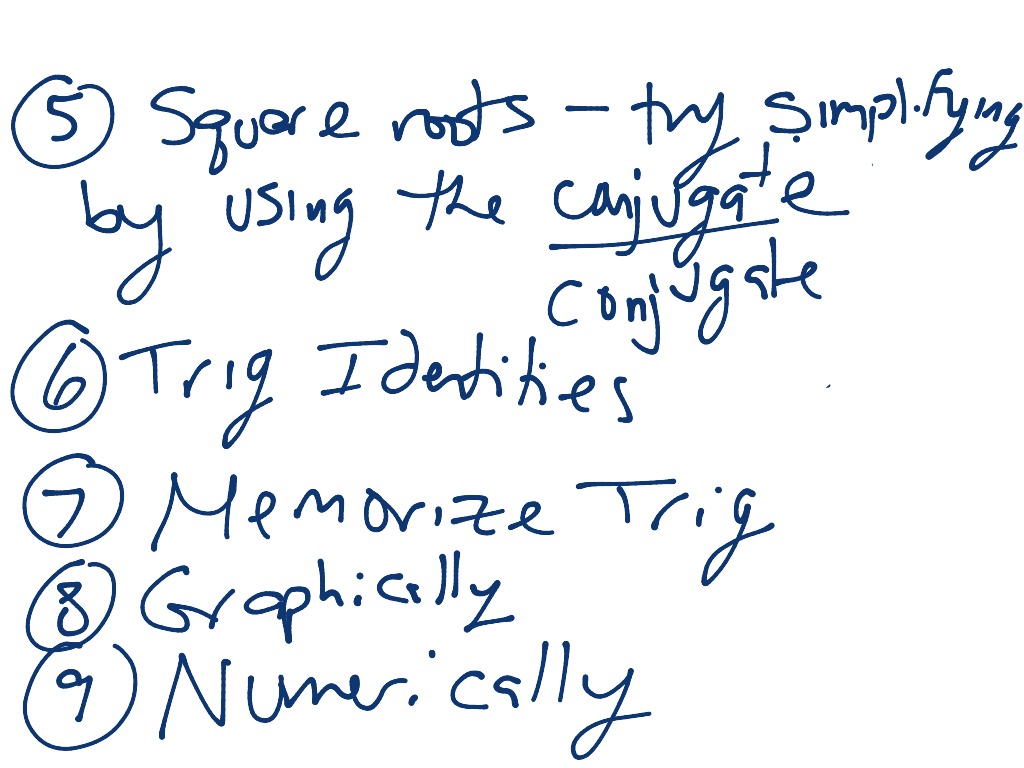 ⑤ Square roots - try simplifying
by using the conjugate
conjugate
⑥ Trig Identities
⑦ Memorize Trig
⑧ Graphically
⑨ Numerically